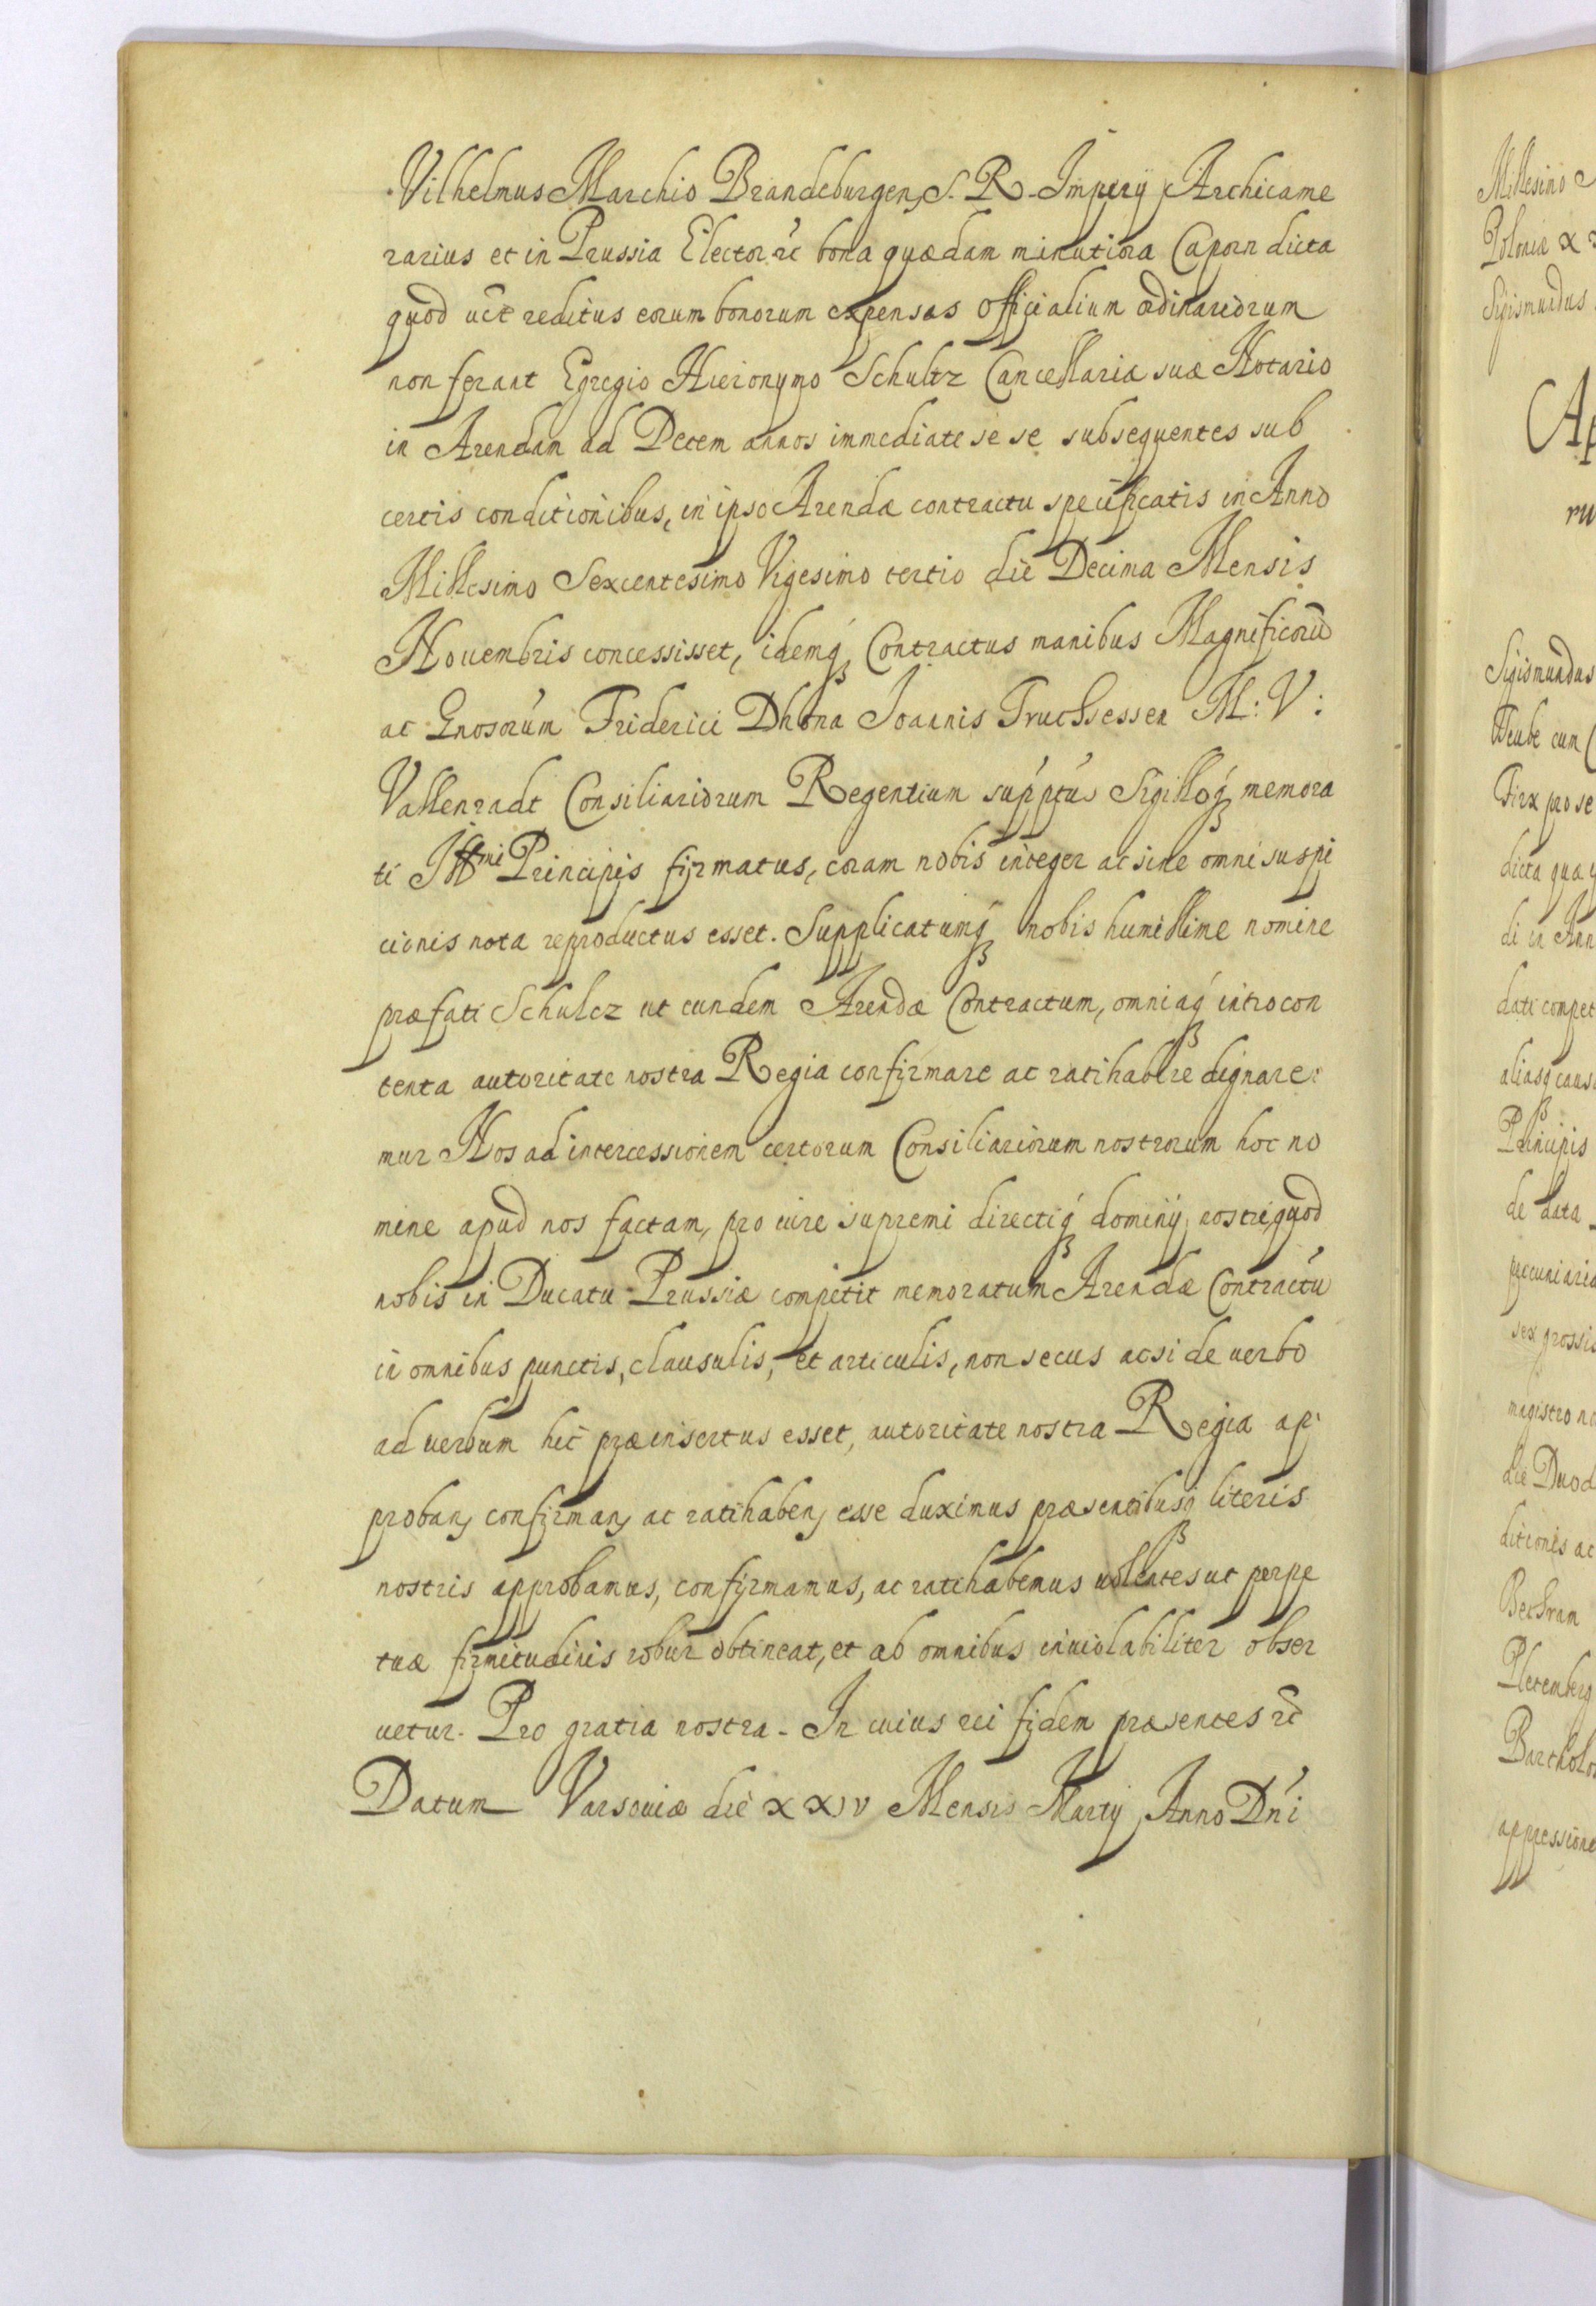 Vilhelmus Marchio Brandeburgen, S. R. Imperÿ Archicame
rarius et in Prussia Elector rc bona quædam minutiora Caporn dicta
quod uct reditus eorum bonorum expensas officialium ordinariorum
non ferant Egregio Hieronymo Schultz Cancellariæ suæ Notario
in Arendam ad Decem annos immediate se se subsequentes sub
certis conditionibus, in ipso Arendæ contractu specificatis in Anno
Millesimo Sexcentesimo Vigesimo tertio die Decima Mensis
Nouembris concessisset, idemq3 Contractus manibus Magnificorū
ac Gnosorum Friderici Dhona Joannis Truchsessen M: V:
Vallenradt Consiliariorum Regentium supptus Sigilloq3 memora
ti Illmi Principis firmatus, coram nobis integer ac sine omni suspi
cionis nota reproductus esset. Supplicatumq3 nobis humillime nomine
præfati Schulcz ut eundem Arendæ Contractum, omniaq3 in eo con
tenta autoritate nostra Regia confirmare ac ratihabere dignare:
mur Nos ad intercessionem certorum Consiliariorum nostrorum hoc no
mine apud nos factam, pro iure supremi directiq3 dominÿ nostri, quod
nobis in Ducatu Prussiæ competit memoratum Arendæ Contractū
in omnibus punctis, clausulis, et articulis, non secus acsi de uerbo
ad uerbum hic præinsertus esset, autoritate nostra Regia ap
proban, confirman, ac ratihaben, esse duximus præsentibusq3 literis
nostris approbamus, confirmamus, ac ratihabemus uolentes ut perpe
tuæ firmitudinis robur obtineat, et ab omnibus inuiolabiliter obser
uetur. Pro gratia nostra. In cuius rei fidem præsentes rc
Datum Varsouiæ die XXIV Mensis Martÿ Anno Dni
Millesimo
Poloniæ
Sigismundus
Ap
ru
Sigismundus
cum
pro se
dicta
di in Ann
dati compet
aliasq3 caus
Principis
de data
pecuniaria
sex grossis
magistro
die Duod
ditionis ac
Pletemberg
Bartholo
appressione